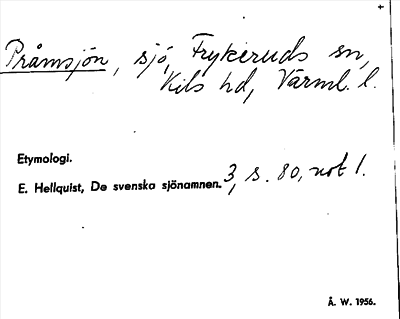 Pråmsjön, sjö, Frykeruds sn,
Kils hd, Värml. l.
Etymologi.
E. Hellquist, De svenska sjönamnen. 3, s. 80, not 1.
Å. W. 1956.